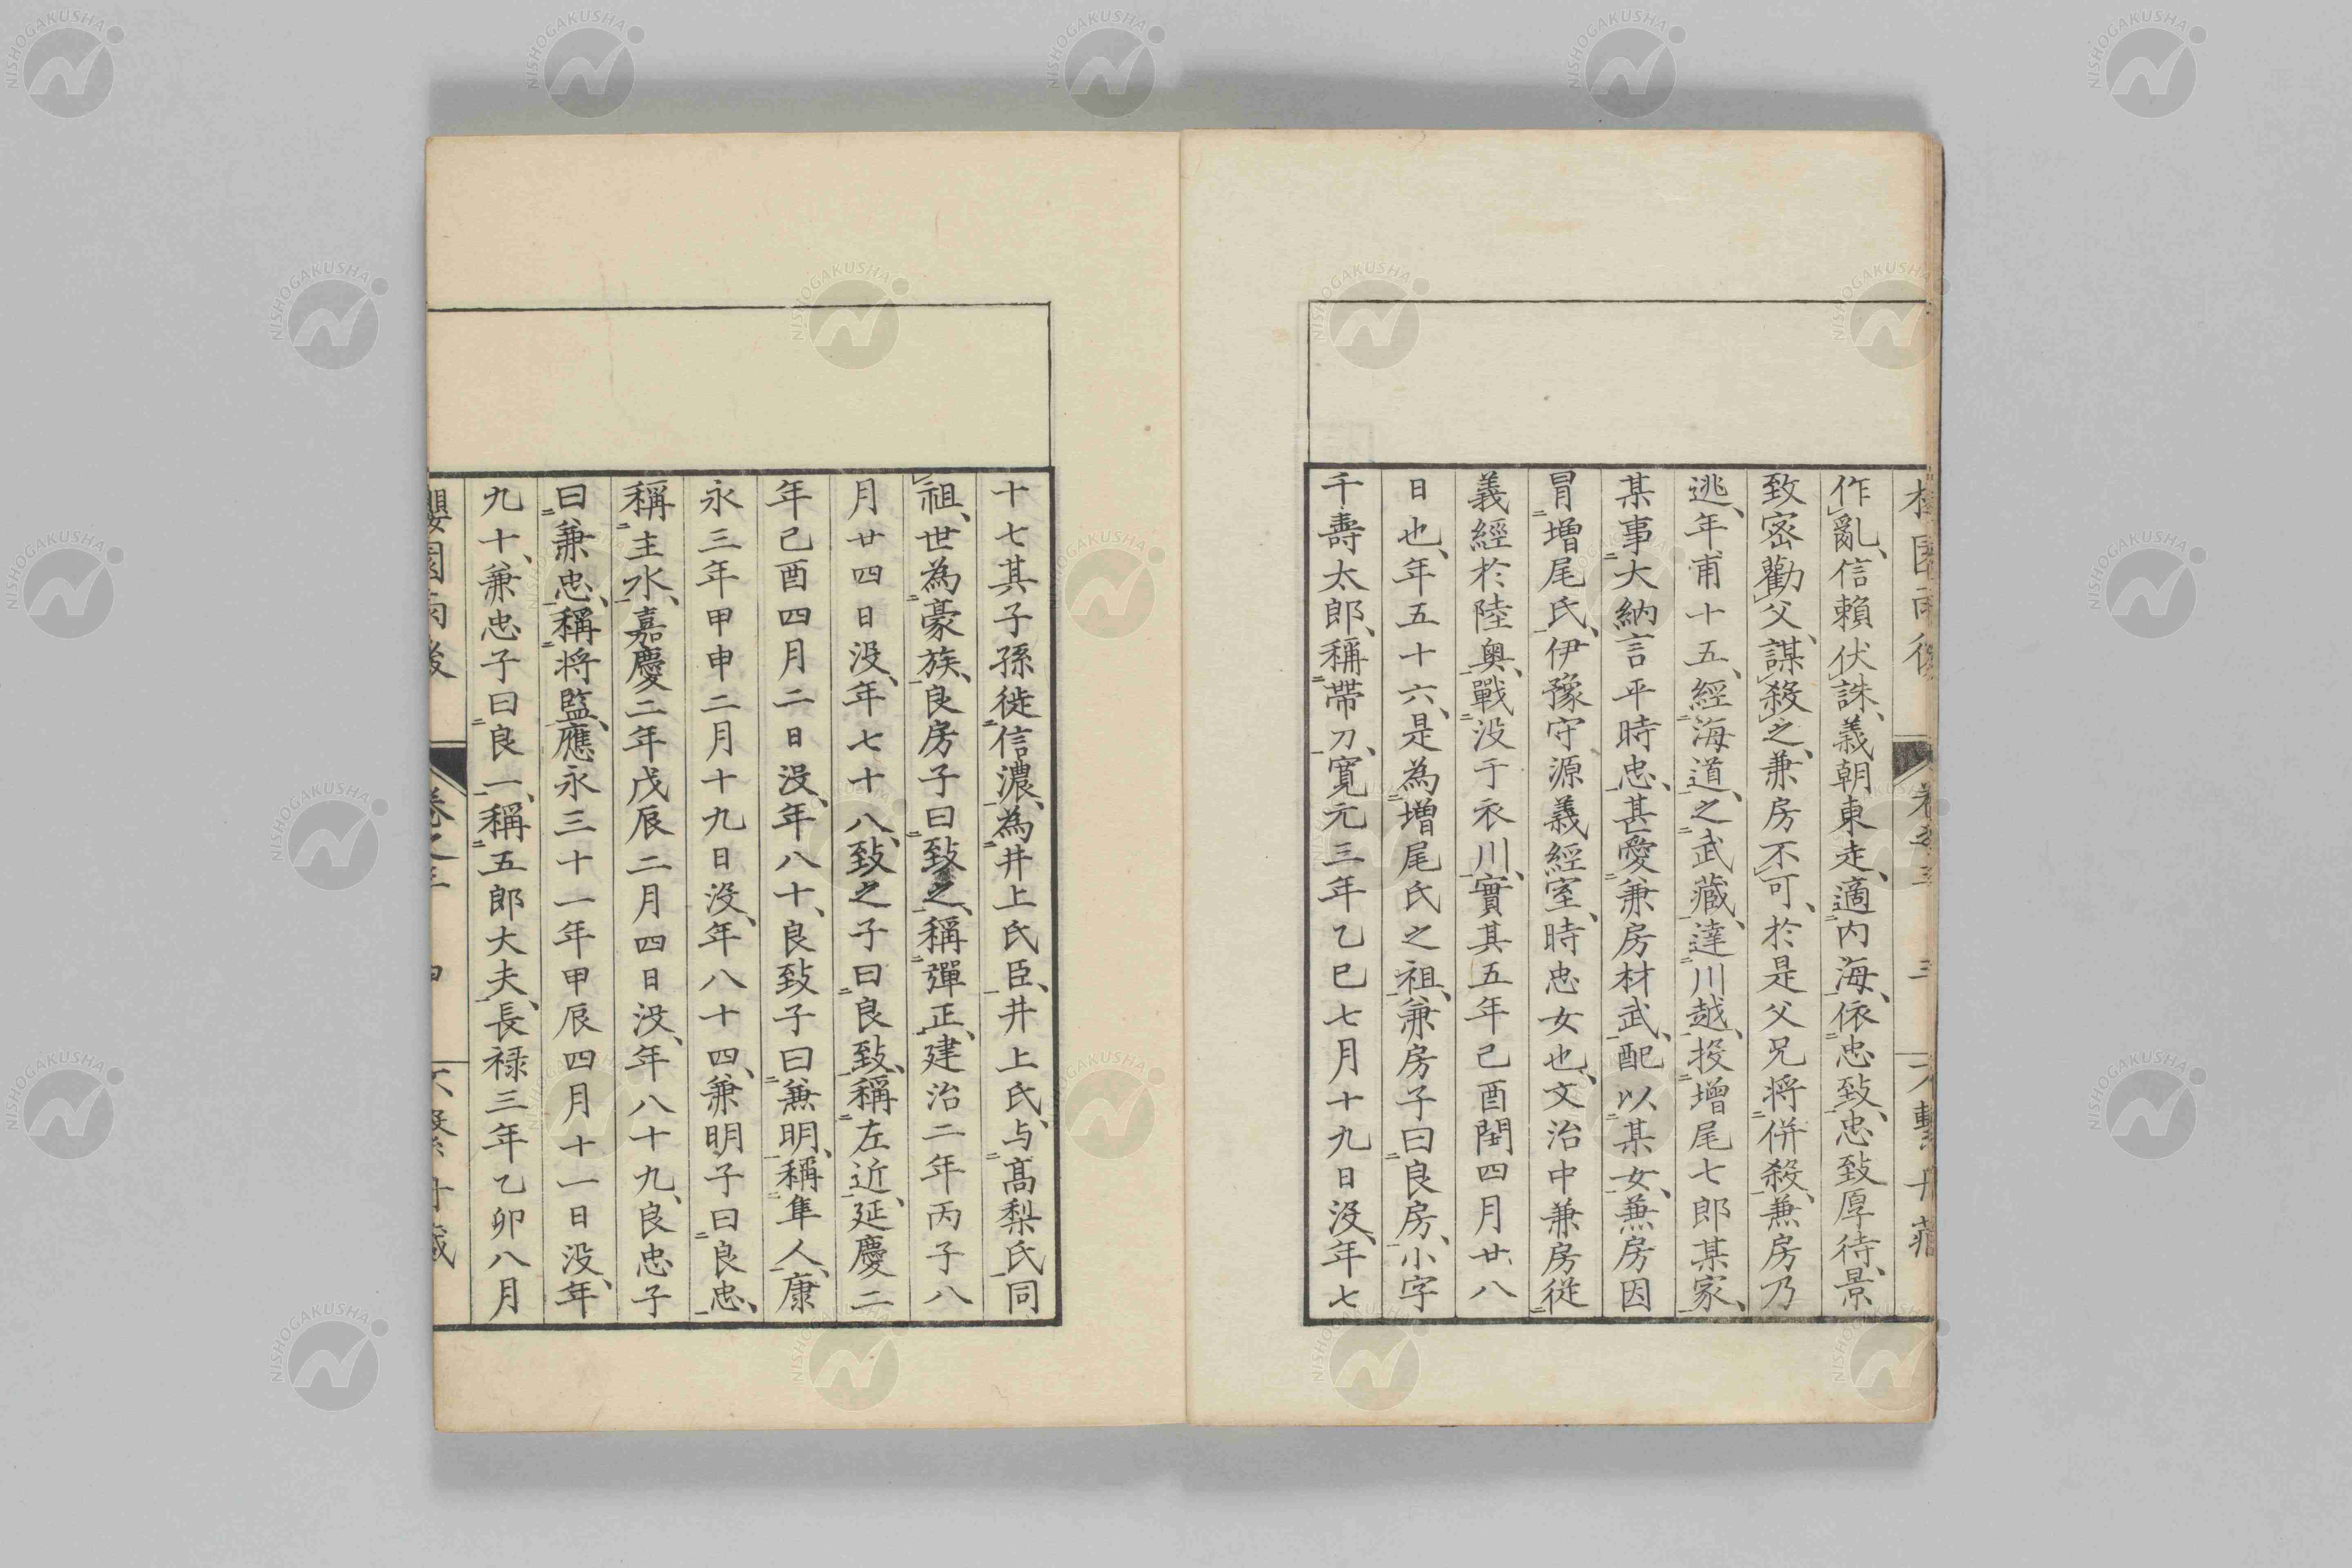 作亂、信賴伏誅、義朝東走、適内海、依忠致、忠致厚待、景
致密勸父、謀殺之、兼房不可、於是父兄将併殺、兼房乃
逃、年甫十五、經海道、之武藏、達川越、投增尾七郎某家、
某事大納言平時忠、甚愛兼房材武、配以某女、兼房因
冐增尾氏、伊豫守源義經室、時忠女也、文治中兼房従
義經於陸奥、戰没于衣川、實其五年己酉閏四月廿八
日也、年五十六、是為增尾氏之祖、兼房子曰良房、小字
千壽太郎、稱帶刀、寛元三年乙巳七月十九日没、年七
十七其子孫徙信濃、為井上氏臣、井上氏、与髙梨氏同
祖、世為豪族、良房子曰致之、稱彈正、建治二年丙子八
月廿四日没、年七十八、致之子曰良致、稱左近、延慶二
年己酉四月二日没、年八十、良致子曰兼明、稱隼人、康
永三年甲申二月十九日没、年八十四、兼明子曰良忠、
稱主水、嘉慶二年戊辰二月四日没、年八十九、良忠子
曰兼忠、稱将監、應永三十一年甲辰四月十一日没、年
九十、兼忠子曰良一、稱五郎大夫、長禄三年乙卯八月
卷之三
NISHOGAKUSHA